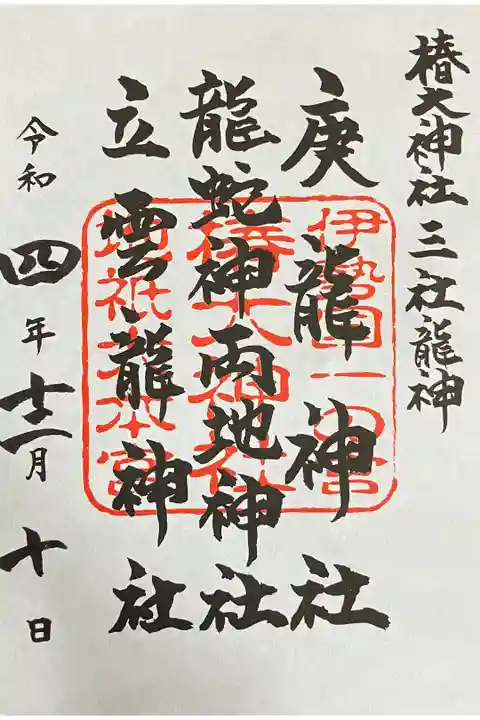 椿大神社三社龍神
庚龍神社
龍蛇神両地神社
立雲龍神社
令和四年十二月十日
伊勢国一の宮
椿大神社
地祇大本宮